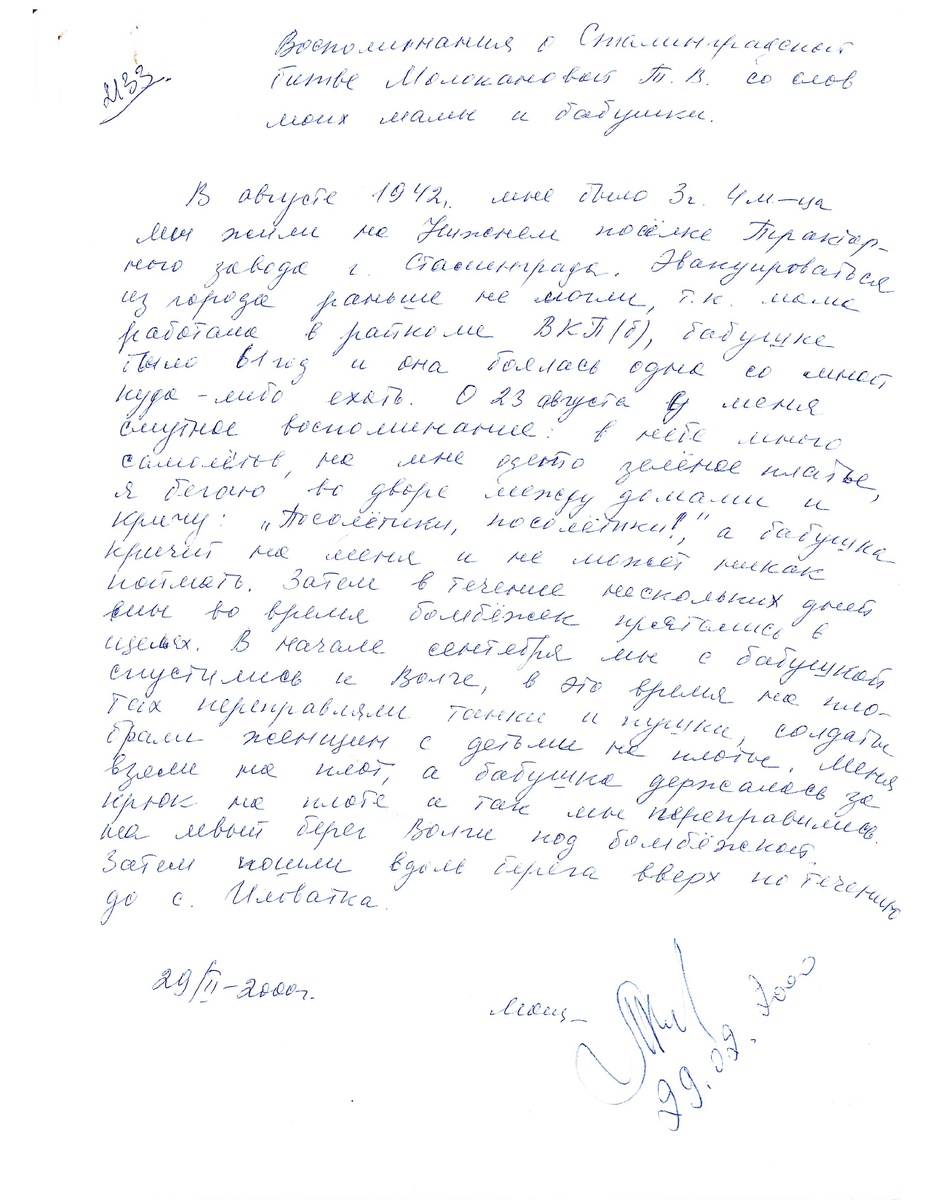 2133.
Воспоминания о Сталинградской
битве Молокановой Т. В. со слов
моих мамы и бабушки.
В августе 1942г. мне было 3г. 4м-ца
Мы жили на Нижнем посёлке Трактор-
ного завода г. Сталинграда. Эвакуироваться
из города раньше не могли, т.к. мама
работала в райкоме ВКП(б), бабушке
было 61 год и она боялась одна со мной
куда-либо ехать. О 23 августа у меня
смутное воспоминание: в небе много
самолётов, на мне одето зелёное платье,
я бегаю во дворе между домами и
кричу: „Посолётики, посолётики!", а бабушка
кричит на меня и не может никак
поймать. Затем в течение нескольких дней
мы во время бомбёжек прятались в
щелях. В начале сентября мы с бабушкой
спустились к Волге, в это время на пло-
тах переправляли танки и пушки, солдаты
брали женщин с детьми на плоты. Меня
взяли на плот, а бабушка держалась за
крюк на плоте и так мы переправились
на левый берег Волги под бомбёжкой.
Затем пошли вдоль берега вверх по течению
до с. Иловатка.
29/II-2000г.
29.02.2000